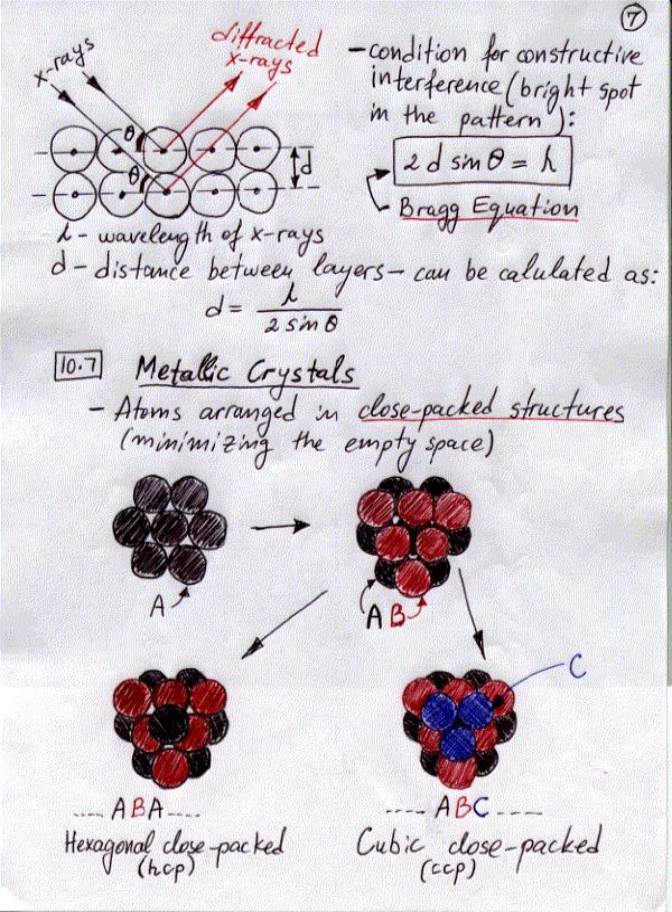 7
x-rays
diffracted
x-rays
θ
θ
d
-condition for constructive
interference (bright spot
in the pattern):
2 d sin θ = λ
Bragg Equation
λ - wavelength of x-rays
d - distance between layers - can be calulated as:
d = λ / 2 sin θ
10.7 Metallic Crystals
- Atoms arranged in close-packed structures
(minimizing the empty space)
A
A B
C
.... ABA ....
Hexagonal close-packed
(hcp)
---- ABC ----
Cubic close-packed
(ccp)